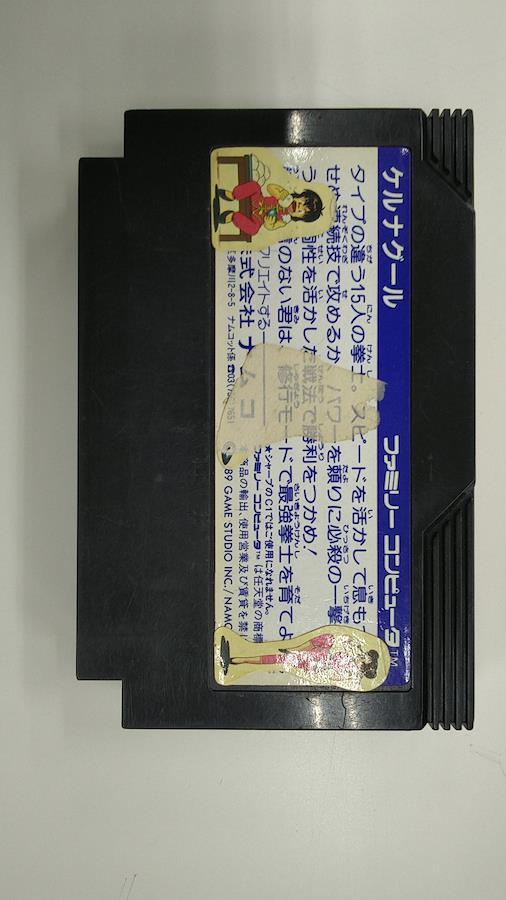 ケルナグール ファミリー コンピュータ™
タイプの違う15人の拳士。スピードを活かして息も
せぬ連続技で攻めるか、パワーを頼りに必殺の一撃
性を活かした戦法で勝利をつかめ!
のない君は、修行モードで最強拳士を育てよ
クリエイトする
★シャープのC1ではご使用になれません。
式会社 ナムコ
ファミリーコンピュータ™は任天堂の商標
多摩川2-8-5 ナムコット係 ☎03
商品の輸出、使用営業及び賃貸を禁
89 GAME STUDIO INC./NAMC